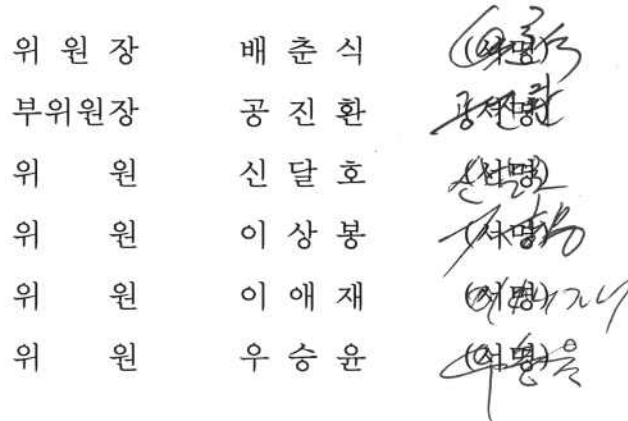 위 원 장 배 춘 식 (서명)
부위원장 공 진 환 (서명)
위 원 신 달 호 (서명)
위 원 이 상 봉 (서명)
위 원 이 애 재 (서명)
위 원 우 승 윤 (서명)